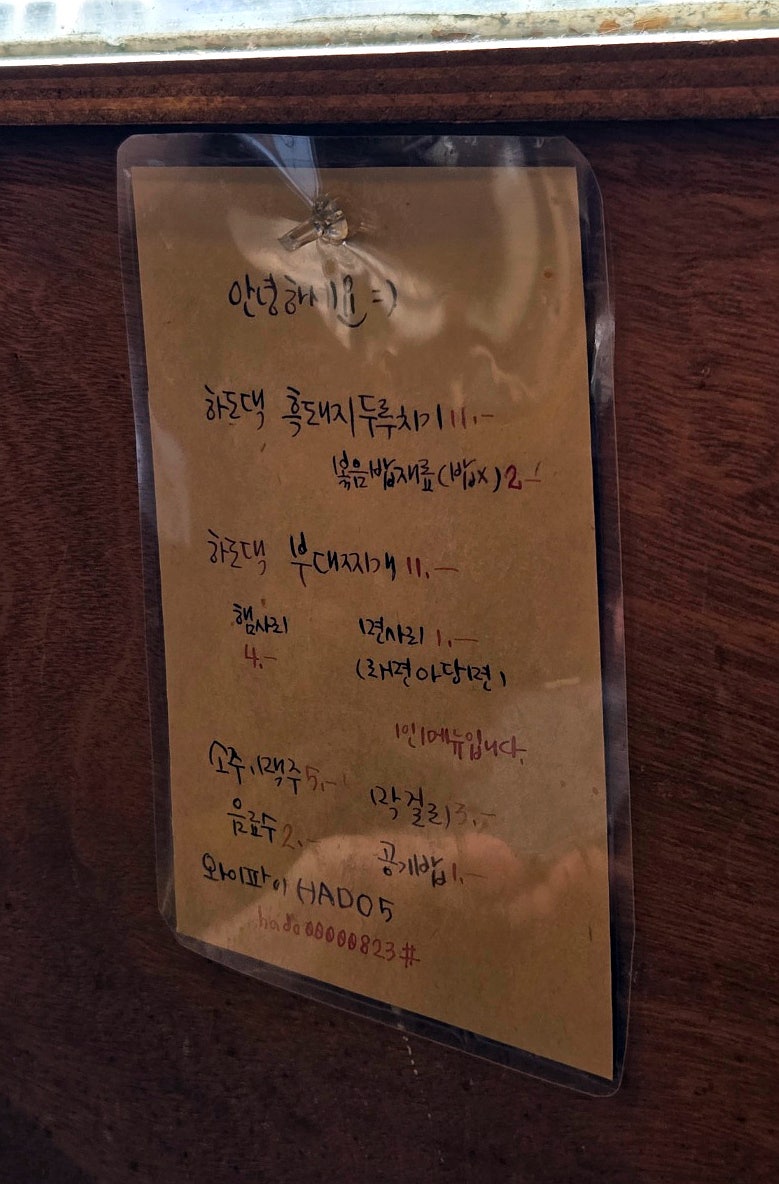 안녕하시요 =)
하도댁 흑돼지두루치기 11.-
볶음밥재료(밥x) 2.-
하도댁 부대찌개 11.-
햄사리 면사리 1.-
4.- (라면아당면)
1인메뉴입니다.
소주,맥주 5.-
막걸리 3.-
음료수 2.-
공기밥 1.-
와이파이 HADO5
hado00000823#